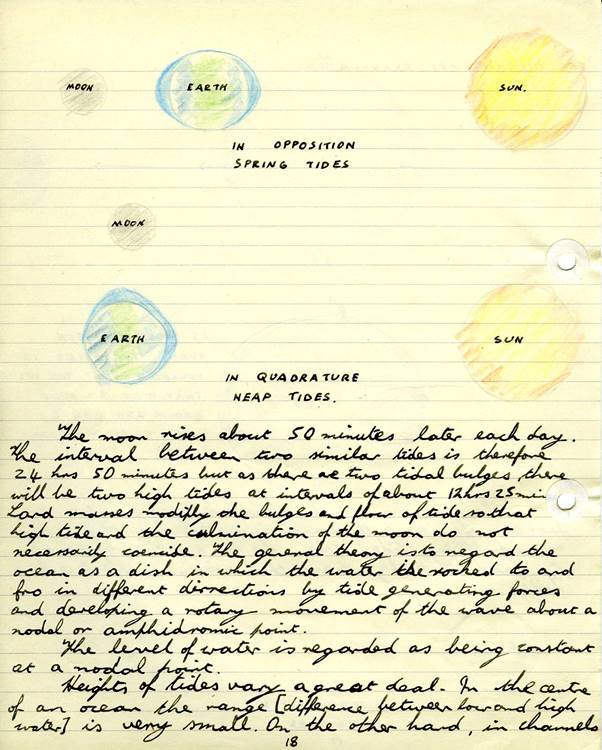 MOON EARTH SUN.
IN OPPOSITION
SPRING TIDES
MOON
EARTH SUN
IN QUADRATURE
NEAP TIDES.
The moon rises about 50 minutes later each day.
The interval between two similar tides is therefore
24 hrs 50 minutes but as there are two tidal bulges there
will be two high tides at intervals of about 12hrs 25 min
Land masses modifly the bulges and flow of tide so that
high tide and the culmination of the moon do not
necessarily coincide. The general theory is to regard the
ocean as a dish in which the water is rocked to and
fro in different dirrections by tide generating forces
and developing a rotary movement of the wave about a
nodal or amphidromic point.
The level of water is regarded as being constant
at a nodal point.
Heights of tides vary a great deal. In the centre
of an ocean the range [difference between low and high
water] is verry small. On the other hand, in channels
18